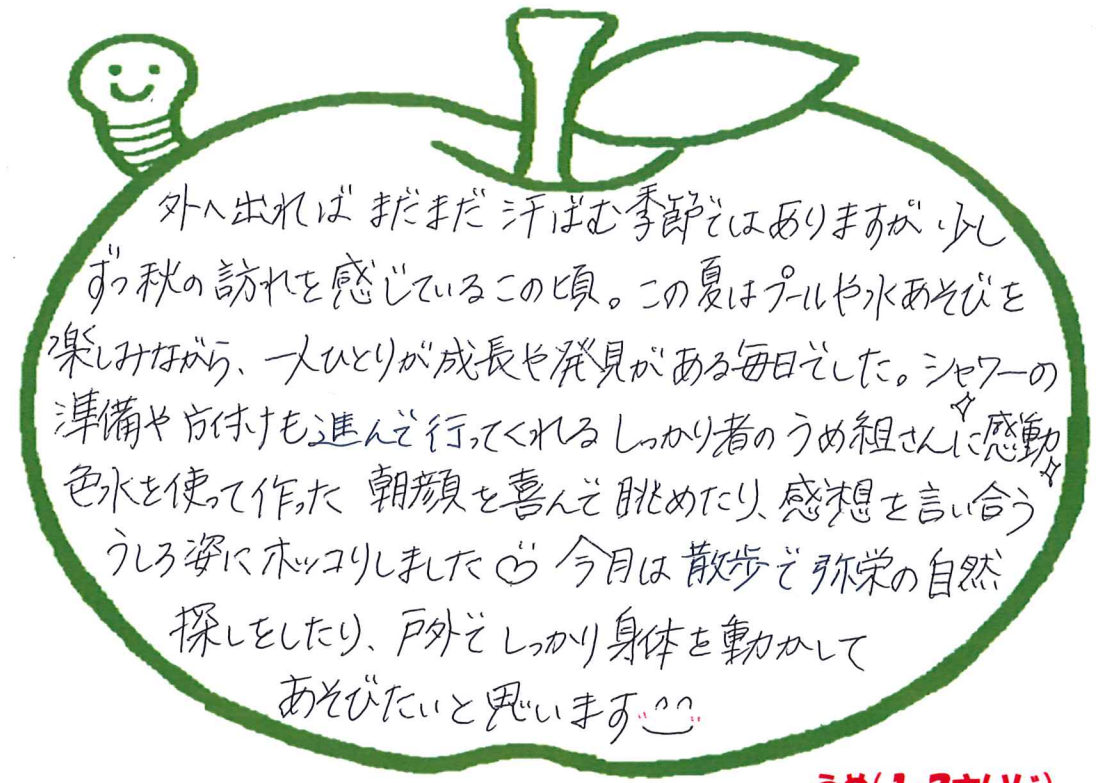 外へ出ればまだまだ汗ばむ季節ではありますが、少し
ずつ秋の訪れを感じているこの頃。この夏はプールや水あそびを
楽しみながら、一人ひとりが成長や発見がある毎日でした。シャワーの
準備や片付けも進んで行ってくれるしっかり者のうめ組さんに感動
色水を使って作った朝顔を喜んで眺めたり、感想を言い合う
うしろ姿にホッコリしました♡今月は散歩で弥栄の自然
探しをしたり、戸外でしっかり身体を動かして
あそびたいと思います